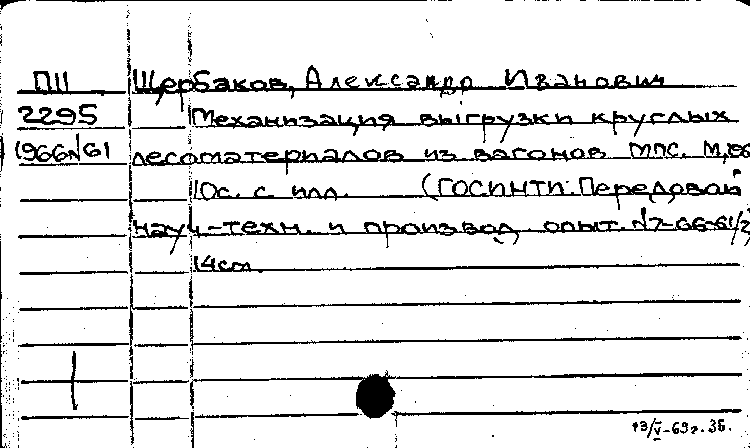 П11 Щербаков, Александр Иванович
2295 Механизация выгрузки круглых
1966№61 лесоматериалов из вагонов МПС. М, 1966
10с. с илл. (ГОСИНТИ. Передовой
науч-техн. и производ. опыт. №7-66-61/2
14см.
13/V-69г. 35.